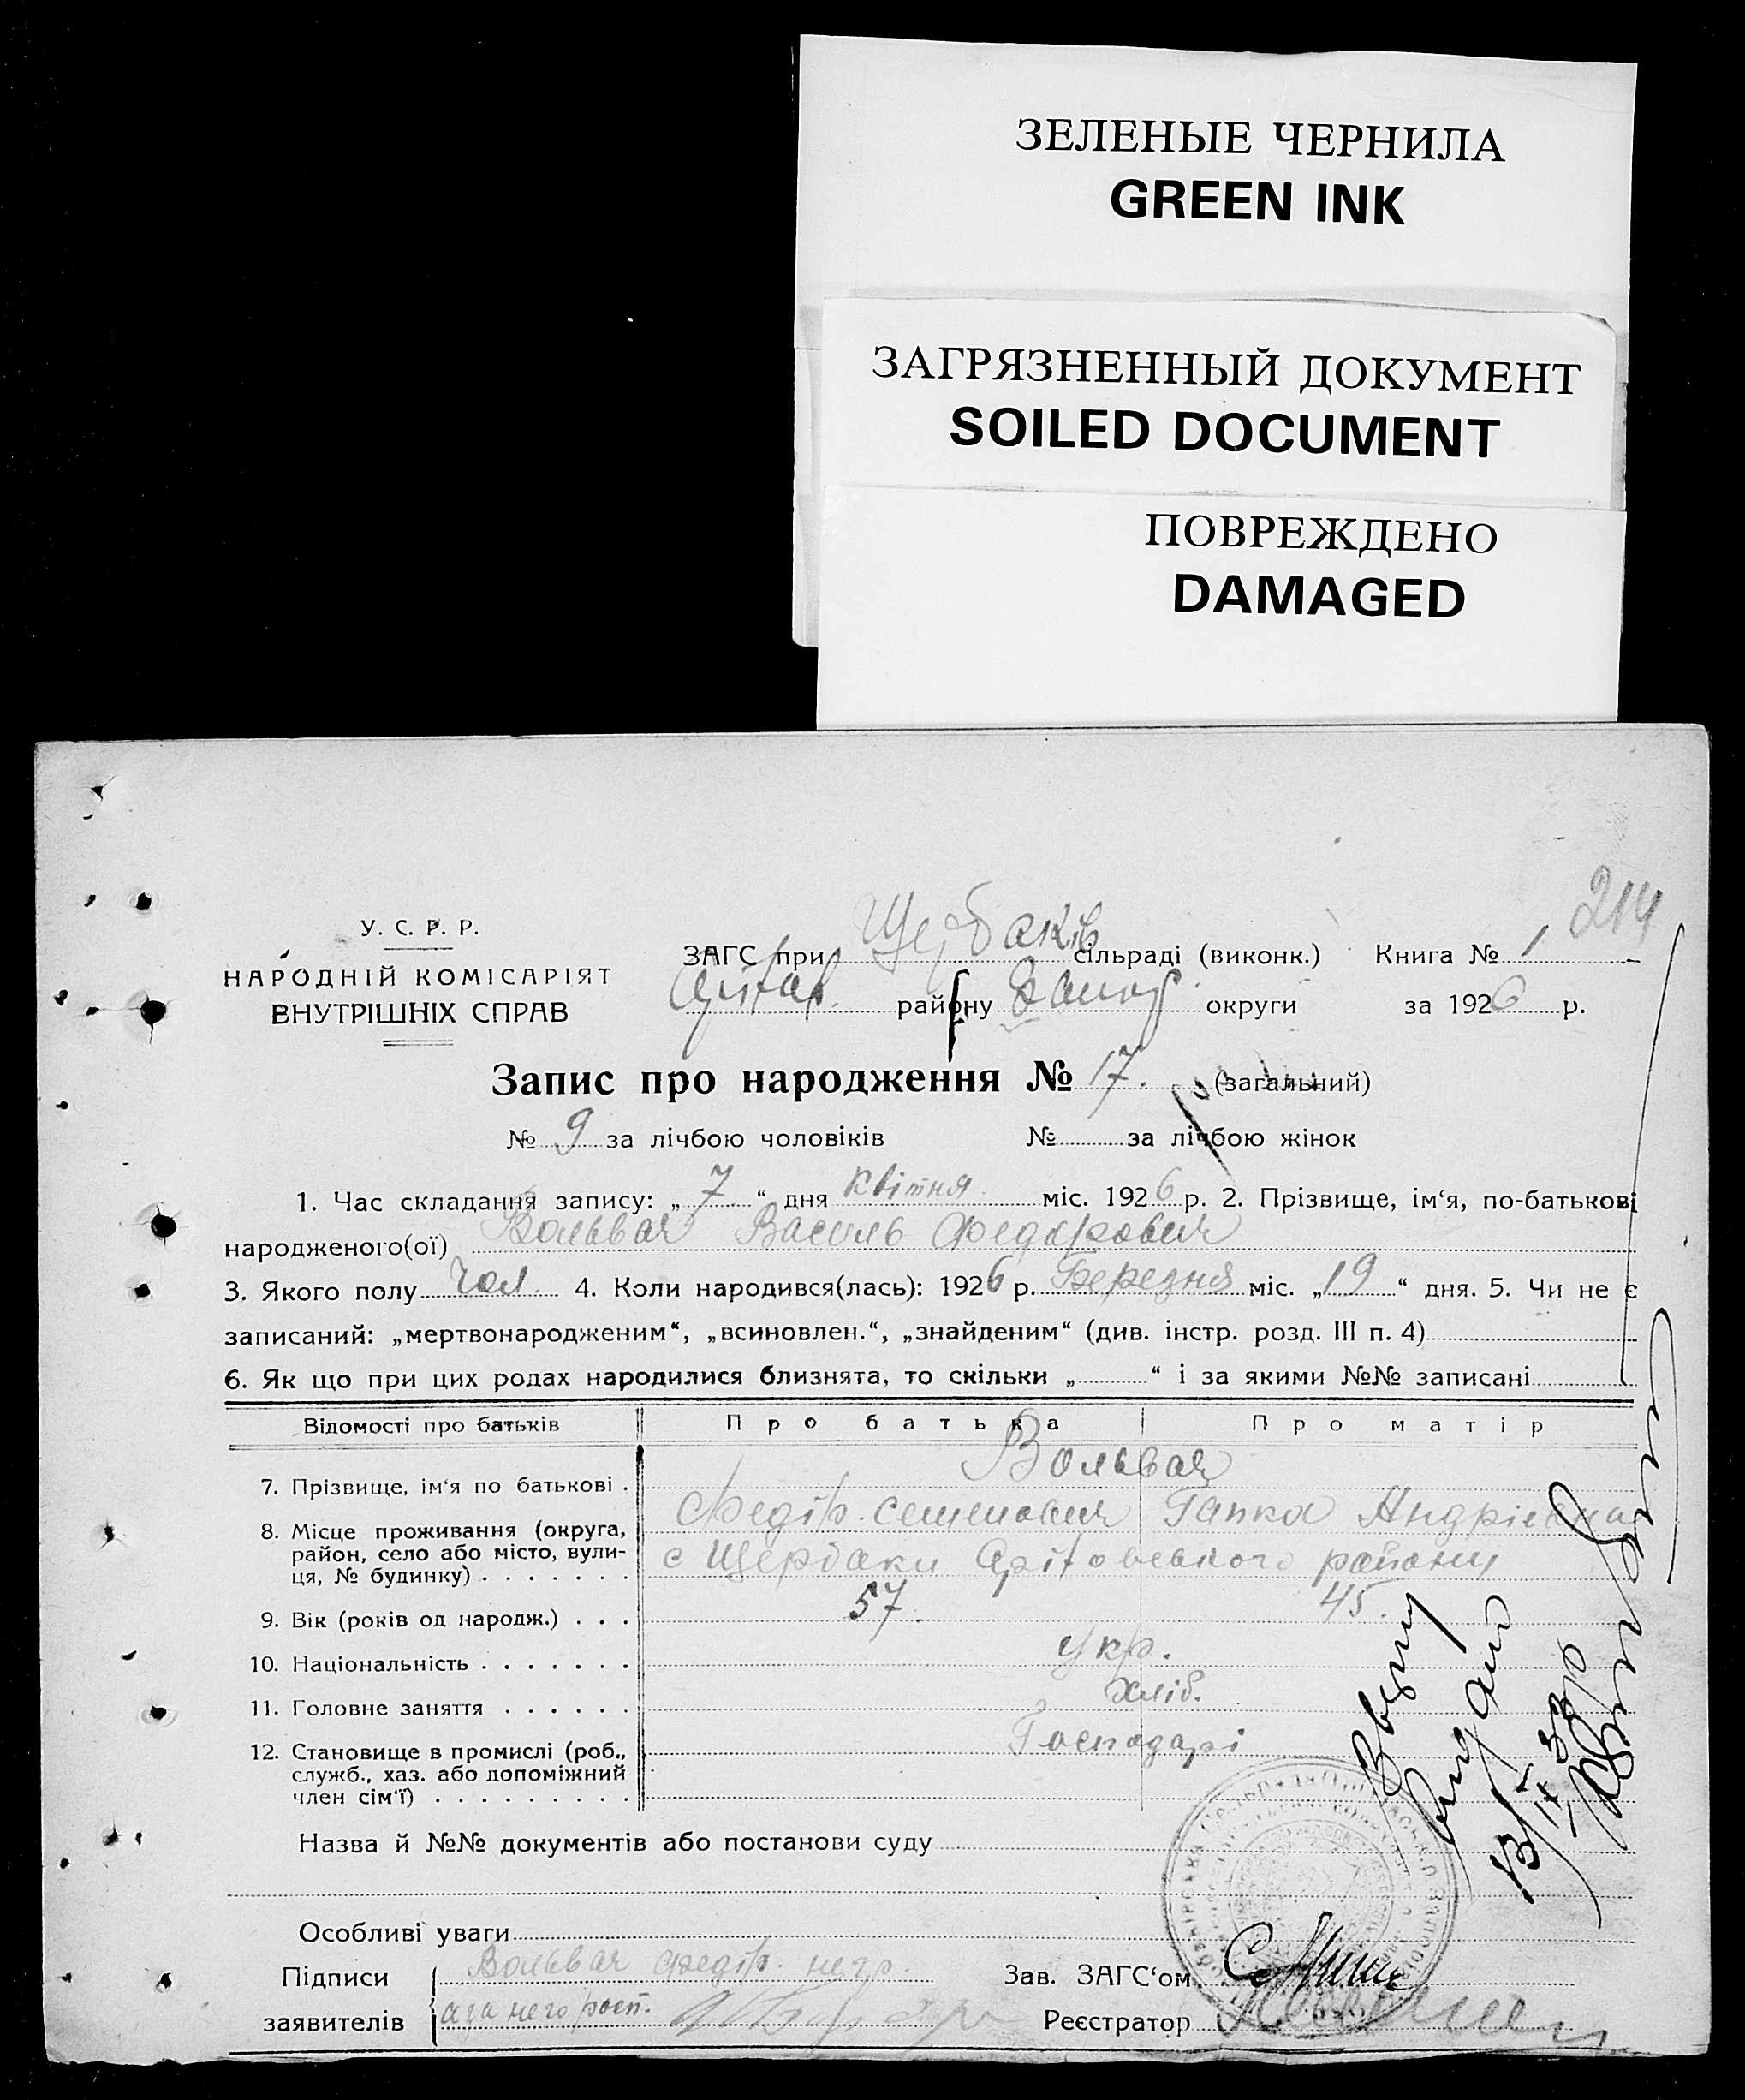 ЗЕЛЕНЫЕ ЧЕРНИЛА
GREEN INK
ЗАГРЯЗНЕННЫЙ ДОКУМЕНТ
SOILED DOCUMENT
ПОВРЕЖДЕНО
DAMAGED
214
У. С. Р. Р.
НАРОДНІЙ КОМІСАРІЯТ
ВНУТРІШНІХ СПРАВ
ЗАГС при Щербаків сільраді (виконк.) Книга № 1
району Запор округи за 1926 р.
Запис про народження № 17. (загальний)
№ 9 за лічбою чоловіків № за лічбою жінок
1. Час складання запису: „ 7 “ дня квітня міс. 1926 р. 2. Прізвище, ім‘я, по-батькові
народженого(ої) Вольвач Василь Федорович
3. Якого полу Чол. 4. Коли народився(лась): 1926 р. Березня міс. „19“ дня. 5. Чи не є
записаний: „мертвонародженим“, „всиновлен.“, „знайденим“ (див. інстр. розд. III п. 4)
6. Як що при цих родах народилися близнята, то скільки „ “ і за якими №№ записані
Відомості про батьків Про батька Про матір
Вольвач
7. Прізвище, ім‘я по батькові . Федір Семенович Гапка Андріевна
8. Місце проживання (округа, район, село або місто, вулиця, № будинку) . . . . . . . с Щербаки району
9. Вік (років од народж.) . . . 57. 45.
10. Національність . . . . . . . укр.
11. Головне заняття . . . . . . Хліб.
12. Становище в промислі (роб., служб., хаз. або допоміжний член сім‘ї) . . . . . . . . . Господарі
Назва й №№ документів або постанови суду
Особливі уваги
Підписи Вольвач Федір. негр.
заявителів а за него росп.
Зав. ЗАГС‘ом
Реєстратор